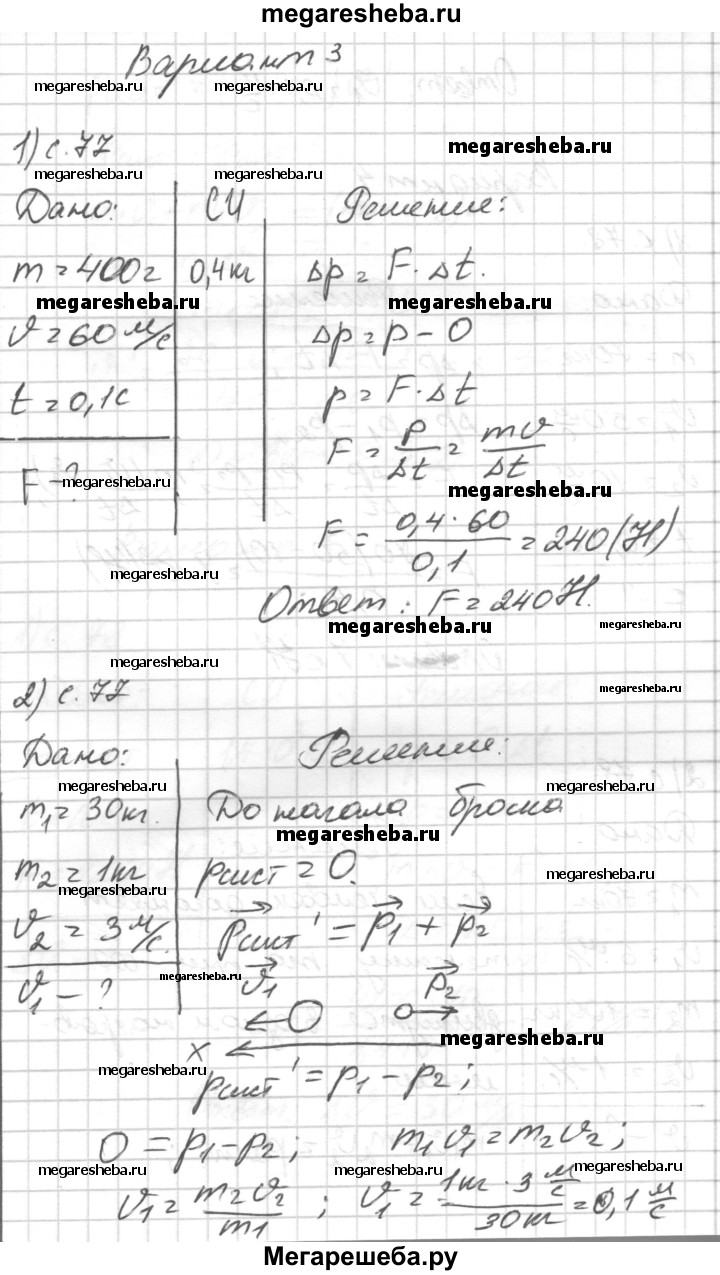 megaresheba.ru
Вариант 3
megaresheba.ru megaresheba.ru
1) с. 77
megaresheba.ru
megaresheba.ru megaresheba.ru
Дано: СИ Решение:
m = 400г 0,4кг Δp = F · Δt.
megaresheba.ru megaresheba.ru
ϑ = 60 м/с Δp = p - 0
t = 0,1с p = F · Δt
F - ? F = p/Δt = mϑ/Δt
megaresheba.ru megaresheba.ru
F = 0,4 · 60 / 0,1 = 240 (Н)
megaresheba.ru
Ответ: F = 240 Н.
megaresheba.ru megaresheba.ru
megaresheba.ru
2) с. 77 megaresheba.ru
Дано: Решение:
megaresheba.ru megaresheba.ru
m₁ = 30кг. До начала броска
megaresheba.ru
m₂ = 1кг pсист = 0.
megaresheba.ru megaresheba.ru
ϑ₂ = 3 м/с. pсист' = p₁ + p₂
megaresheba.ru
ϑ₁ - ? ϑ₁ p₂
megaresheba.ru
x
megaresheba.ru
pсист' = p₁ - p₂;
0 = p₁ - p₂; m₁ϑ₁ = m₂ϑ₂;
megaresheba.ru megaresheba.ru megaresheba.ru
ϑ₁ = m₂ϑ₂/m₁ ; ϑ₁ = 1кг · 3 м/с / 30кг = 0,1 м/с
Мегарешеба.ру